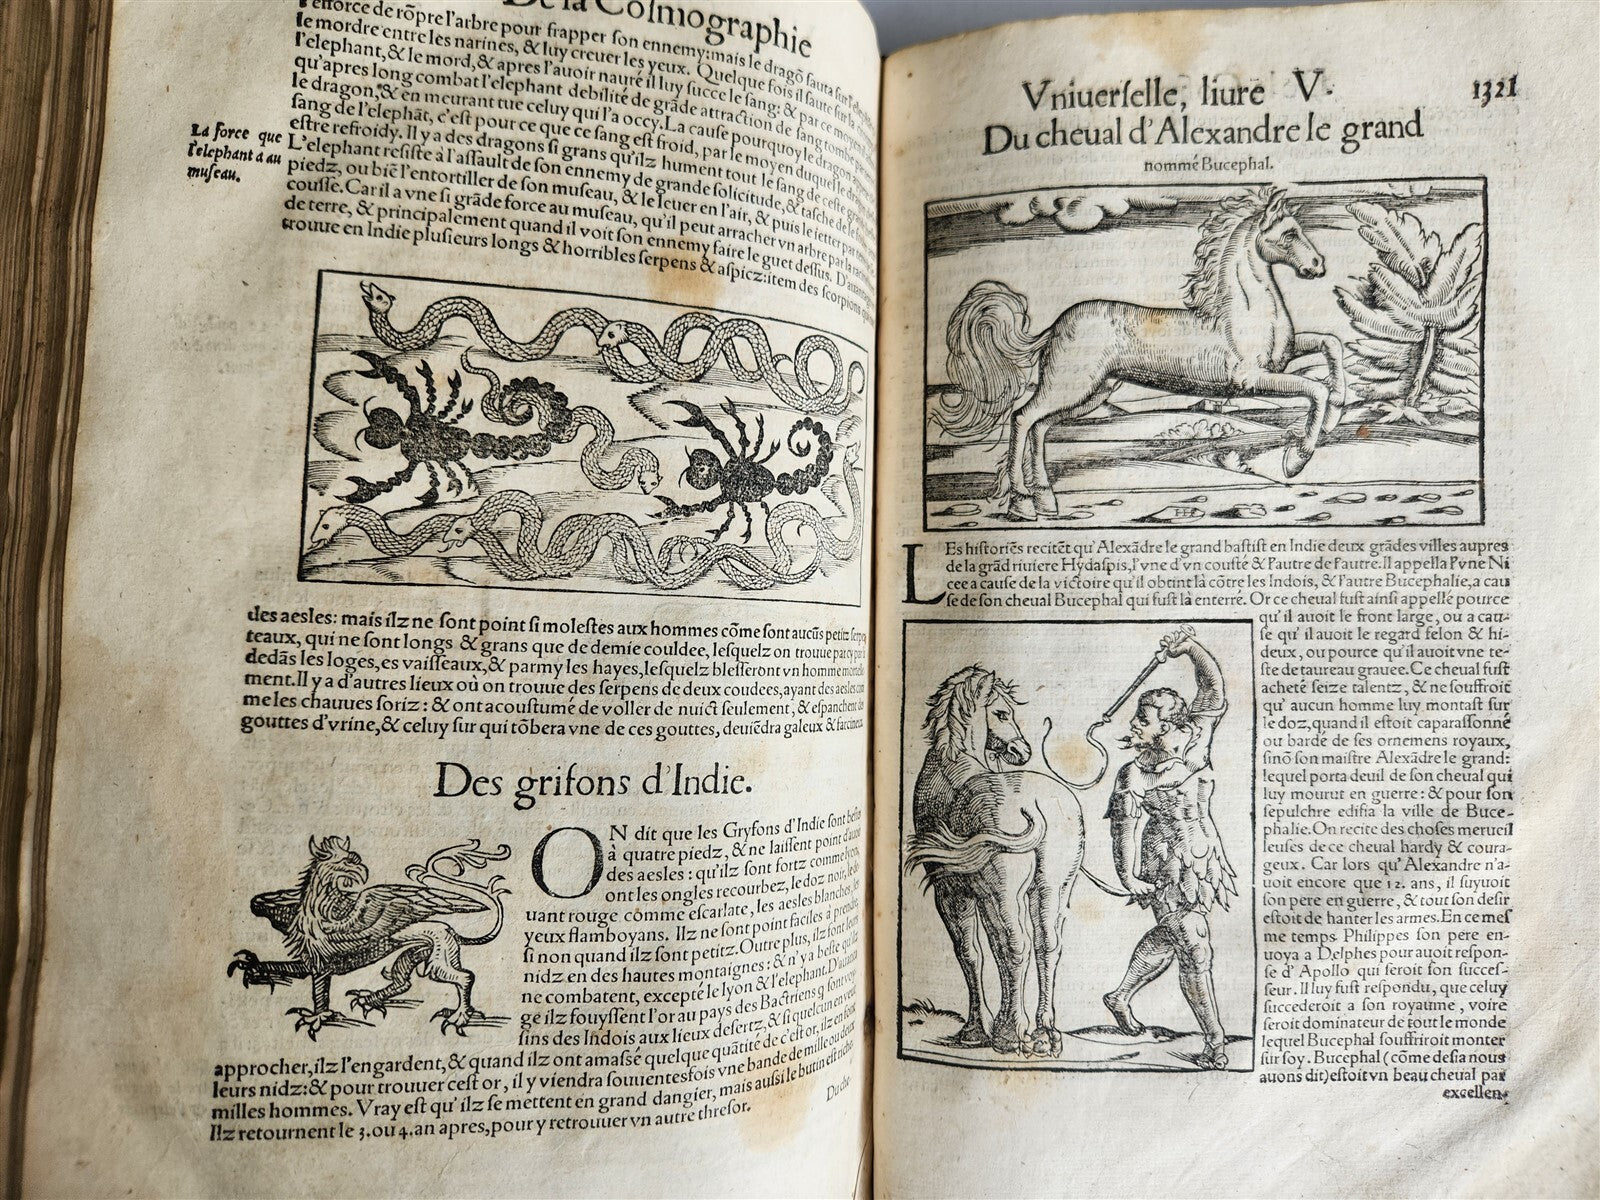 De la Cosmographie
l'efforce de rõpre l'arbre pour frapper son ennemy: mais le dragõ sauta sur
le mordre entre les narines, & luy creuer les yeux. Quelque fois il saute sur la
l'elephant, & le mord, & apres l'auoir nauré il luy succe le sang: & par ce moyen
qu'apres long combat l'elephant debilité de grãde attraction de sang tombe
le dragon, & en meurant tue celuy qui l'a occy. La cause pourquoy le dragon
sang de l'elephãt, c'est pour ce que ce sang est froid, par le moyen duquel le dragon
estre refroidy. Il y a des dragons si grans qu'ilz hument tout le sang de ceste
L'elephant resiste à l'assault de son ennemy de grande solicitude, & tasche de le
piedz, ou biẽ l'entortiller de son museau, & le leuer en l'air, & puis le ietter par
cousse. Car il a vne si grãde force au museau, qu'il peut arracher vn arbre par la racine
de terre, & principalement quand il voit son ennemy faire le guet dessus. D'auantage
trouue en Indie plusieurs longs & horribles serpens & aspicz: item des scorpions
La force que
l'elephant a au
museau.
des aesles: mais ilz ne sont point si molestes aux hommes cõme sont aucũs petitz
teaux, qui ne sont longs & grans que de demie couldee, lesquelz on trouue par cy par là
dedãs les loges, es vaisseaux, & parmy les hayes, lesquelz blesseront vn homme mortelle
ment. Il y a d'autres lieux où on trouue des serpens de deux coudees, ayant des aesles com
me les chauues soriz: & ont acoustume de voller de nuict seulement, & espanchent des
gouttes d'vrine, & celuy sur qui tõbera vne de ces gouttes, deuiẽdra galeux & farcineux
Des grifons d'Indie.
ON dit que les Gryfons d'Indie sont bestes
à quatre piedz, & ne laissent point d'auoir
des aesles: qu'ilz sont fortz comme lyons,
ont les ongles recourbez, le doz noir, le de
uant rouge comme escarlate, les aesles blanches, les
yeux flamboyans. Ilz ne sont point faciles à prendre,
si non quand ilz sont petitz. Outre plus, ilz font leurs
nidz en des hautes montaignes: & n'y a beste qu'ilz
ne combatent, excepté le lyon & l'elephant. D'auanta
ge ilz fouyssent l'or au pays des Bactriens q̃ sont voy
sins des Indois aux lieux desertz, & si quelcun en veut
approcher, ilz l'engardent, & quand ilz ont amassé quelque quãtité de c'est or, ilz en font
leurs nidz: & pour trouuer cest or, il y viendra souuentesfois vne bande de mille ou deux
milles hommes. Vray est qu'ilz se mettent en grand dangier, mais aussi le butin est riche
Ilz retournent le 3. ou 4. an apres, pour y retrouuer vn autre thresor.
Du che-
Vniuerselle, liure V.
1321
Du cheual d'Alexandre le grand
nommé Bucephal.
LEs histories recitẽt qu'Alexãdre le grand bastist en Indie deux grãdes villes aupres
de la grãd riuiere Hydaspis, l'vne d'vn cousté & l'autre de l'autre. Il appella l'vne Ni
cee a cause de la victoire qu'il obtint là cõtre les Indois, & l'autre Bucephalie, a cau
se de son cheual Bucephal qui fust là enterré. Or ce cheual fust ainsi appellé pource
qu'il auoit le front large, ou a cau-
se qu'il auoit le regard felon & hi-
deux, ou pource qu'il auoit vne te-
ste de taureau grauee. Ce cheual fust
acheté seize talentz, & ne souffroit
qu'aucun homme luy montast sur
le doz, quand il estoit caparassonné
ou bardé de ses ornemens royaux,
sinõ son maistre Alexãdre le grand:
lequel porta deuil de son cheual qui
luy mourut en guerre: & pour son
sepulchre edifia la ville de Buce-
phalie. On recite des choses merueil
leuses de ce cheual hardy & coura-
geux. Car lors qu'Alexandre n'a-
uoit encore que 12. ans, il suyuoit
son pere en guerre, & tout son desir
estoit de hanter les armes. En ce mes
me temps Philippes son pere en-
uoya a Delphes pour auoit respon-
se d'Apollo qui seroit son succes-
seur. Il luy fust respondu, que celuy
succederoit a son royaume, voire
seroit dominateur de tout le monde
lequel Bucephal souffriroit monter
sur soy. Bucephal (cõme desia nous
auons dit) estoit vn beau cheual par
excellen-